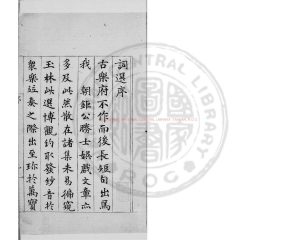 詞選序
古樂府不作而後長短句出焉
我 朝鉅公勝士娛戲文章亦
多及此然散在諸集未易徧窺
玉林此選博觀約取發妙音於
衆樂竝奏之際出至珍於萬寶
CENTRAL LIBRARY